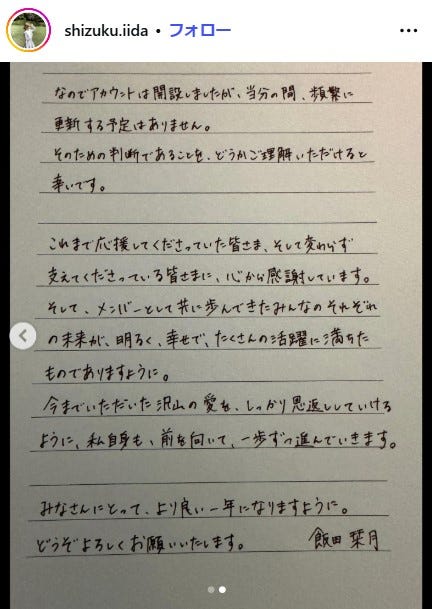 shizuku.iida • フォロー
なのでアカウントは開設しましたが、当分の間、頻繁に
更新する予定はありません。
そのための判断であることを、どうかご理解いただけると
幸いです。
これまで応援してくださっていた皆さま、そして変わらず
支えてくださっている皆さまに、心から感謝しています。
そして、メンバーとして共に歩んできたみんなのそれぞれ
の未来が、明るく、幸せで、たくさんの活躍に満ちた
ものでありますように。
今までいただいた沢山の愛を、しっかり恩返ししていける
ように、私自身も、前を向いて、一歩ずつ進んでいきます。
みなさんにとって、より良い一年になりますように。
どうぞよろしくお願いいたします。 飯田 栞月